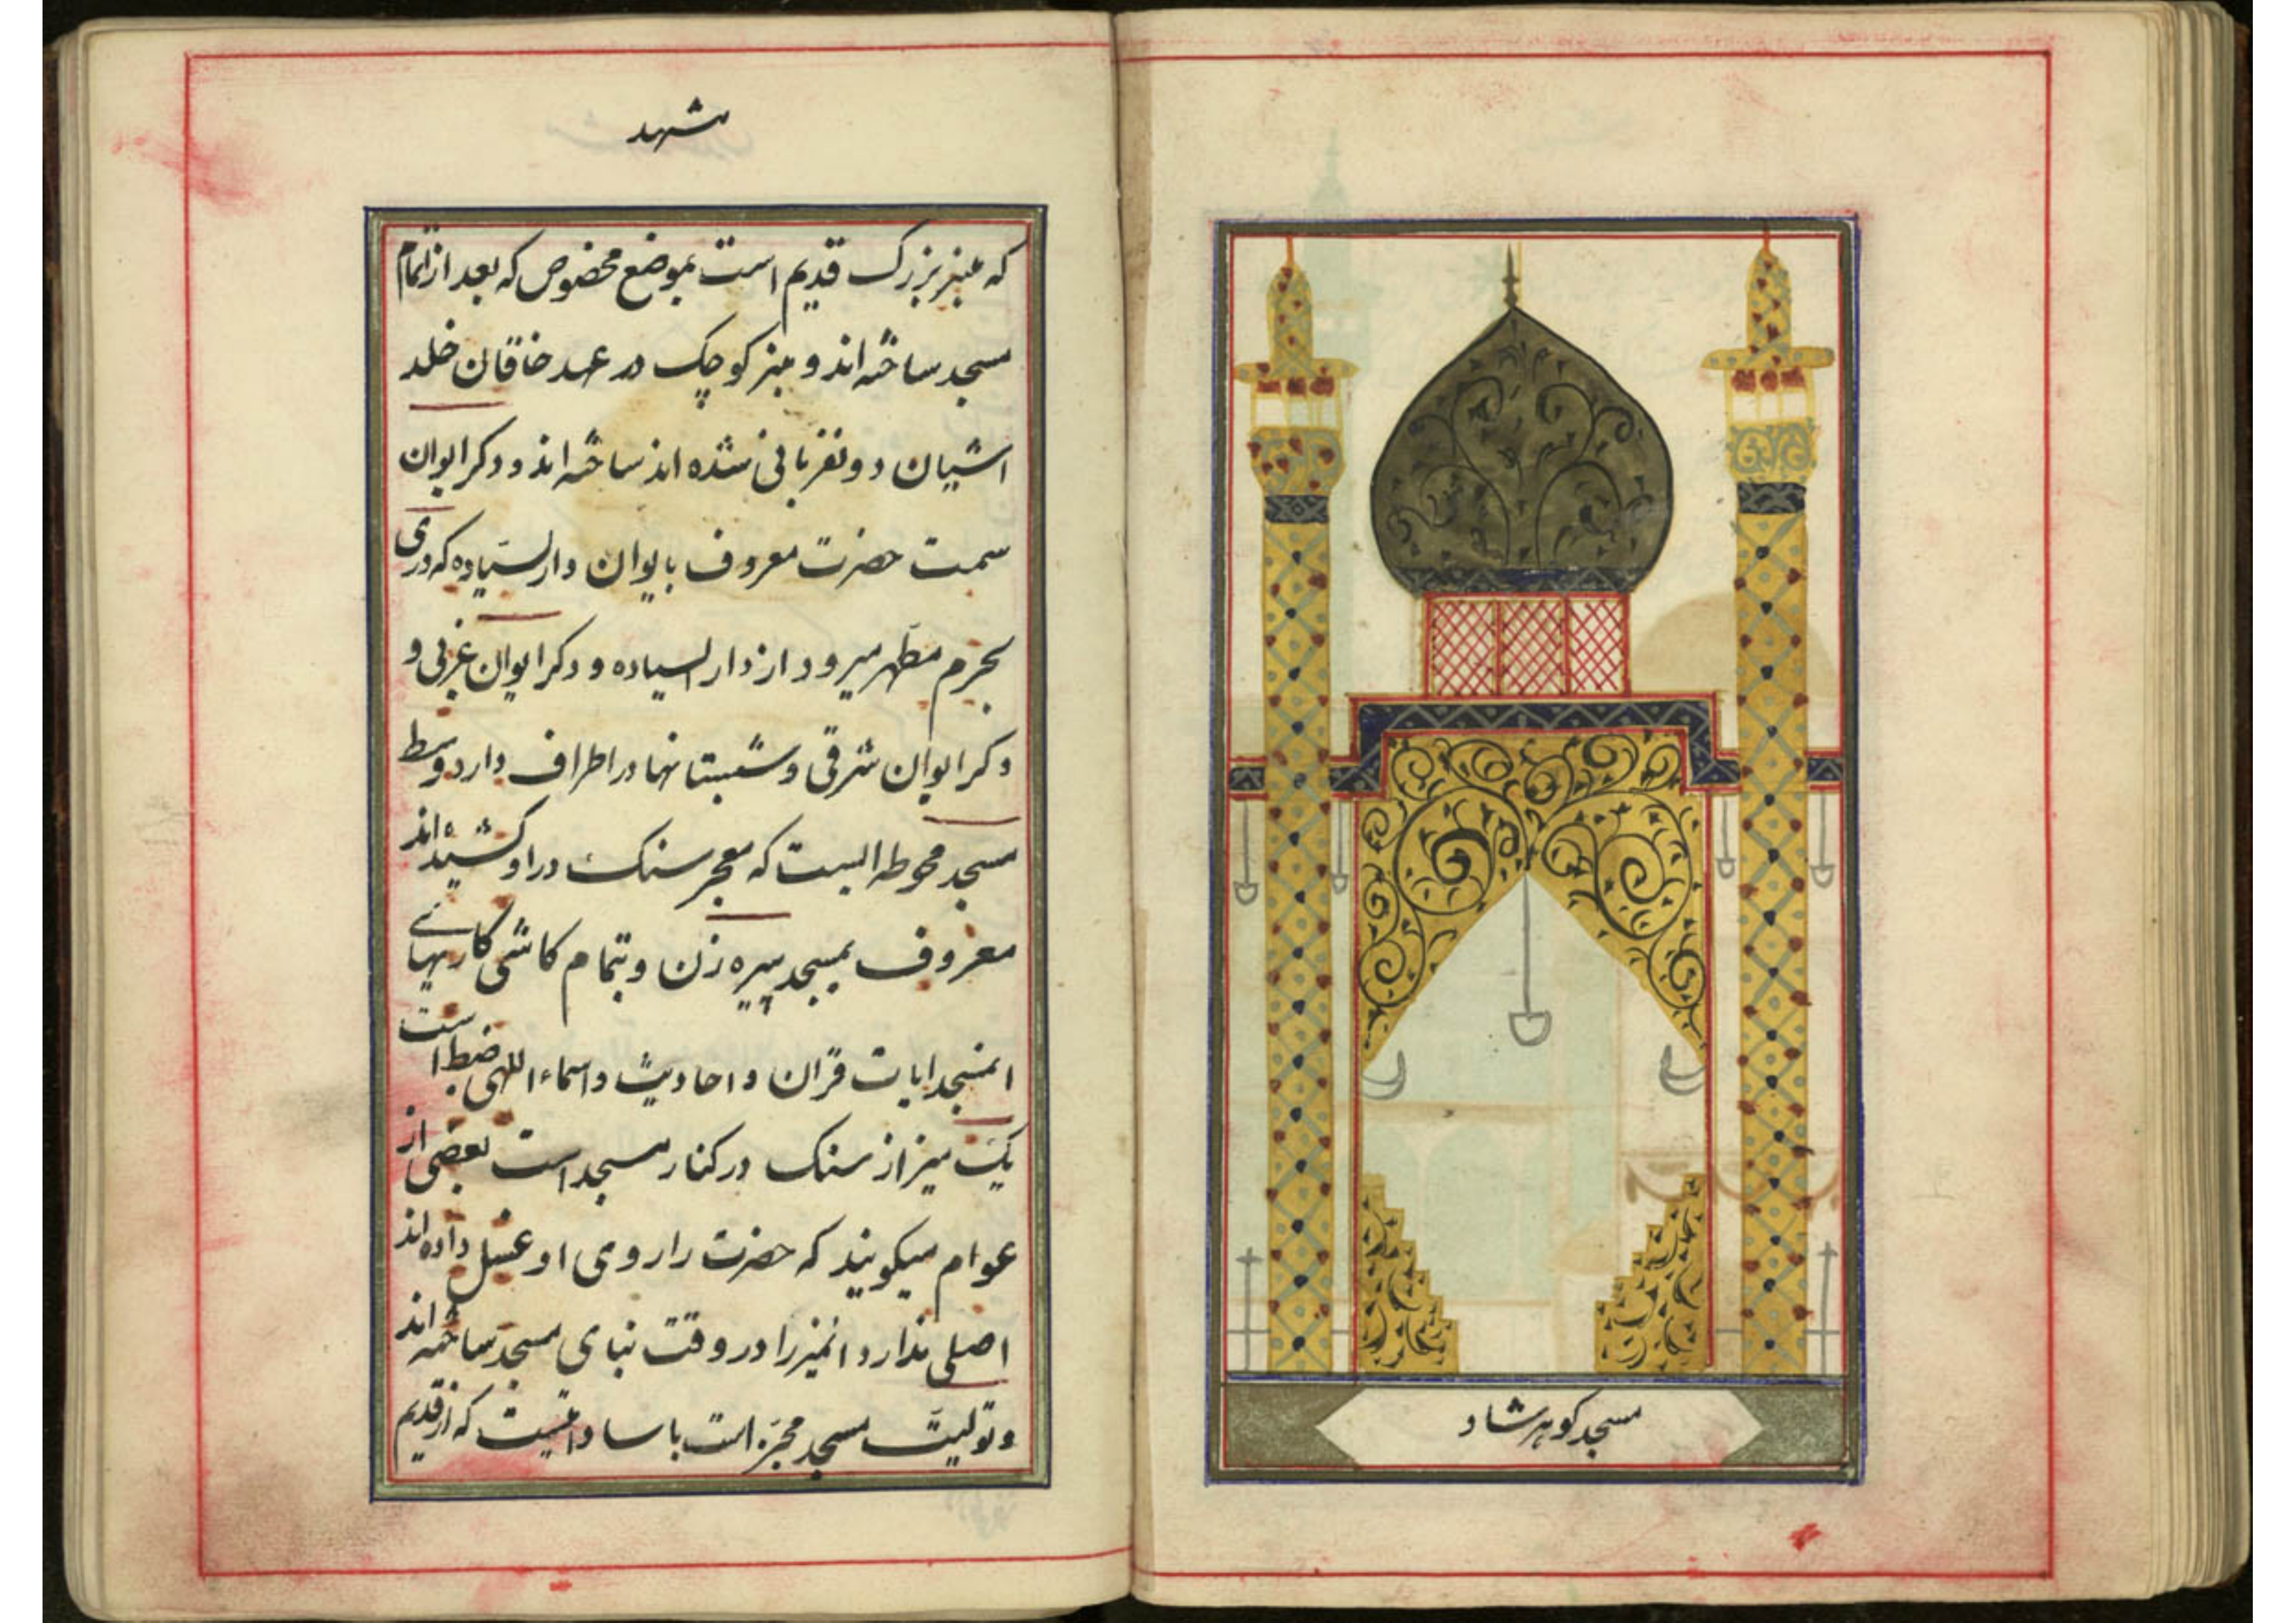 مسجد کوهرشاد
مشهد
که منبر بزرک قدیم است بموضع مخصوص که بعد از اتمام
مسجد ساخته‌اند و منبر کوچک در عهد خاقان خلد
اشیان دو نفر بانی شده اند ساخته‌اند و دکر ایوان
سمت حضرت معروف بایوان دار السیاده که دری
بحرم مطهر میرود از دار السیاده و دکر ایوان غربی و
دکر ایوان شرقی و شبستانها در اطراف دارد وسط
مسجد محوطه ایست که معجر سنک در او کشیده‌اند
معروف بمسجد پیره زن و بتمام کاشی کاریهای
انمسجد ایات قران و احادیث و اسماء اللهی ضبط است
یک میز از سنک در کنار مسجد است بعضی از
عوام میکویند که حضرت را روی او غسل داده‌اند
اصلی ندارد انمیز را در وقت بنای مسجد ساخته‌اند
و تولیت مسجد است که از قدیم